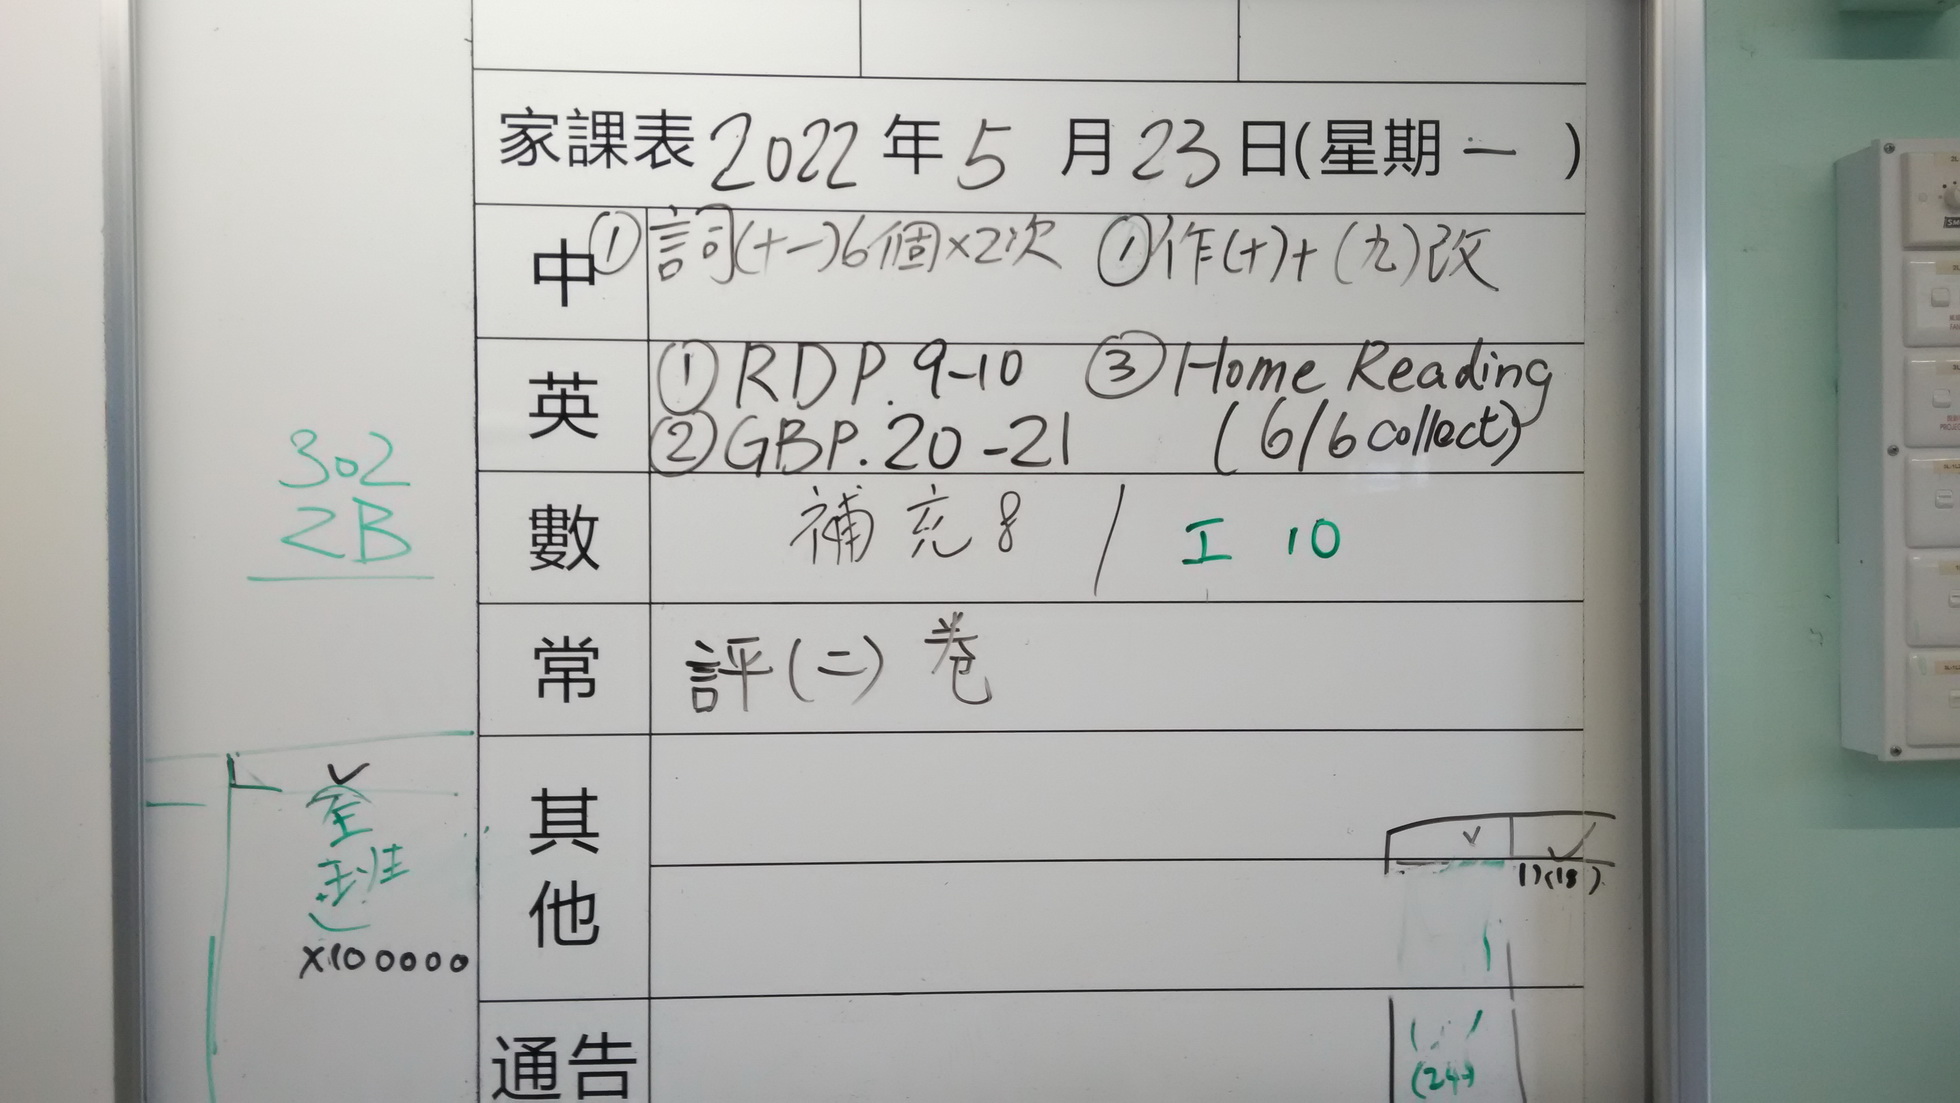 家課表2022年5月23日(星期一)
中 ①詞(十一)6個×2次 ①作(十)+(九)改
英 ①RDP.9-10 ③Home Reading
②GBP.20-21 (6/6collect)
數 補充8 / 工 10
常 評(二)卷
其他
通告
302
2B
全
班
×100000
1)(18)
(24)